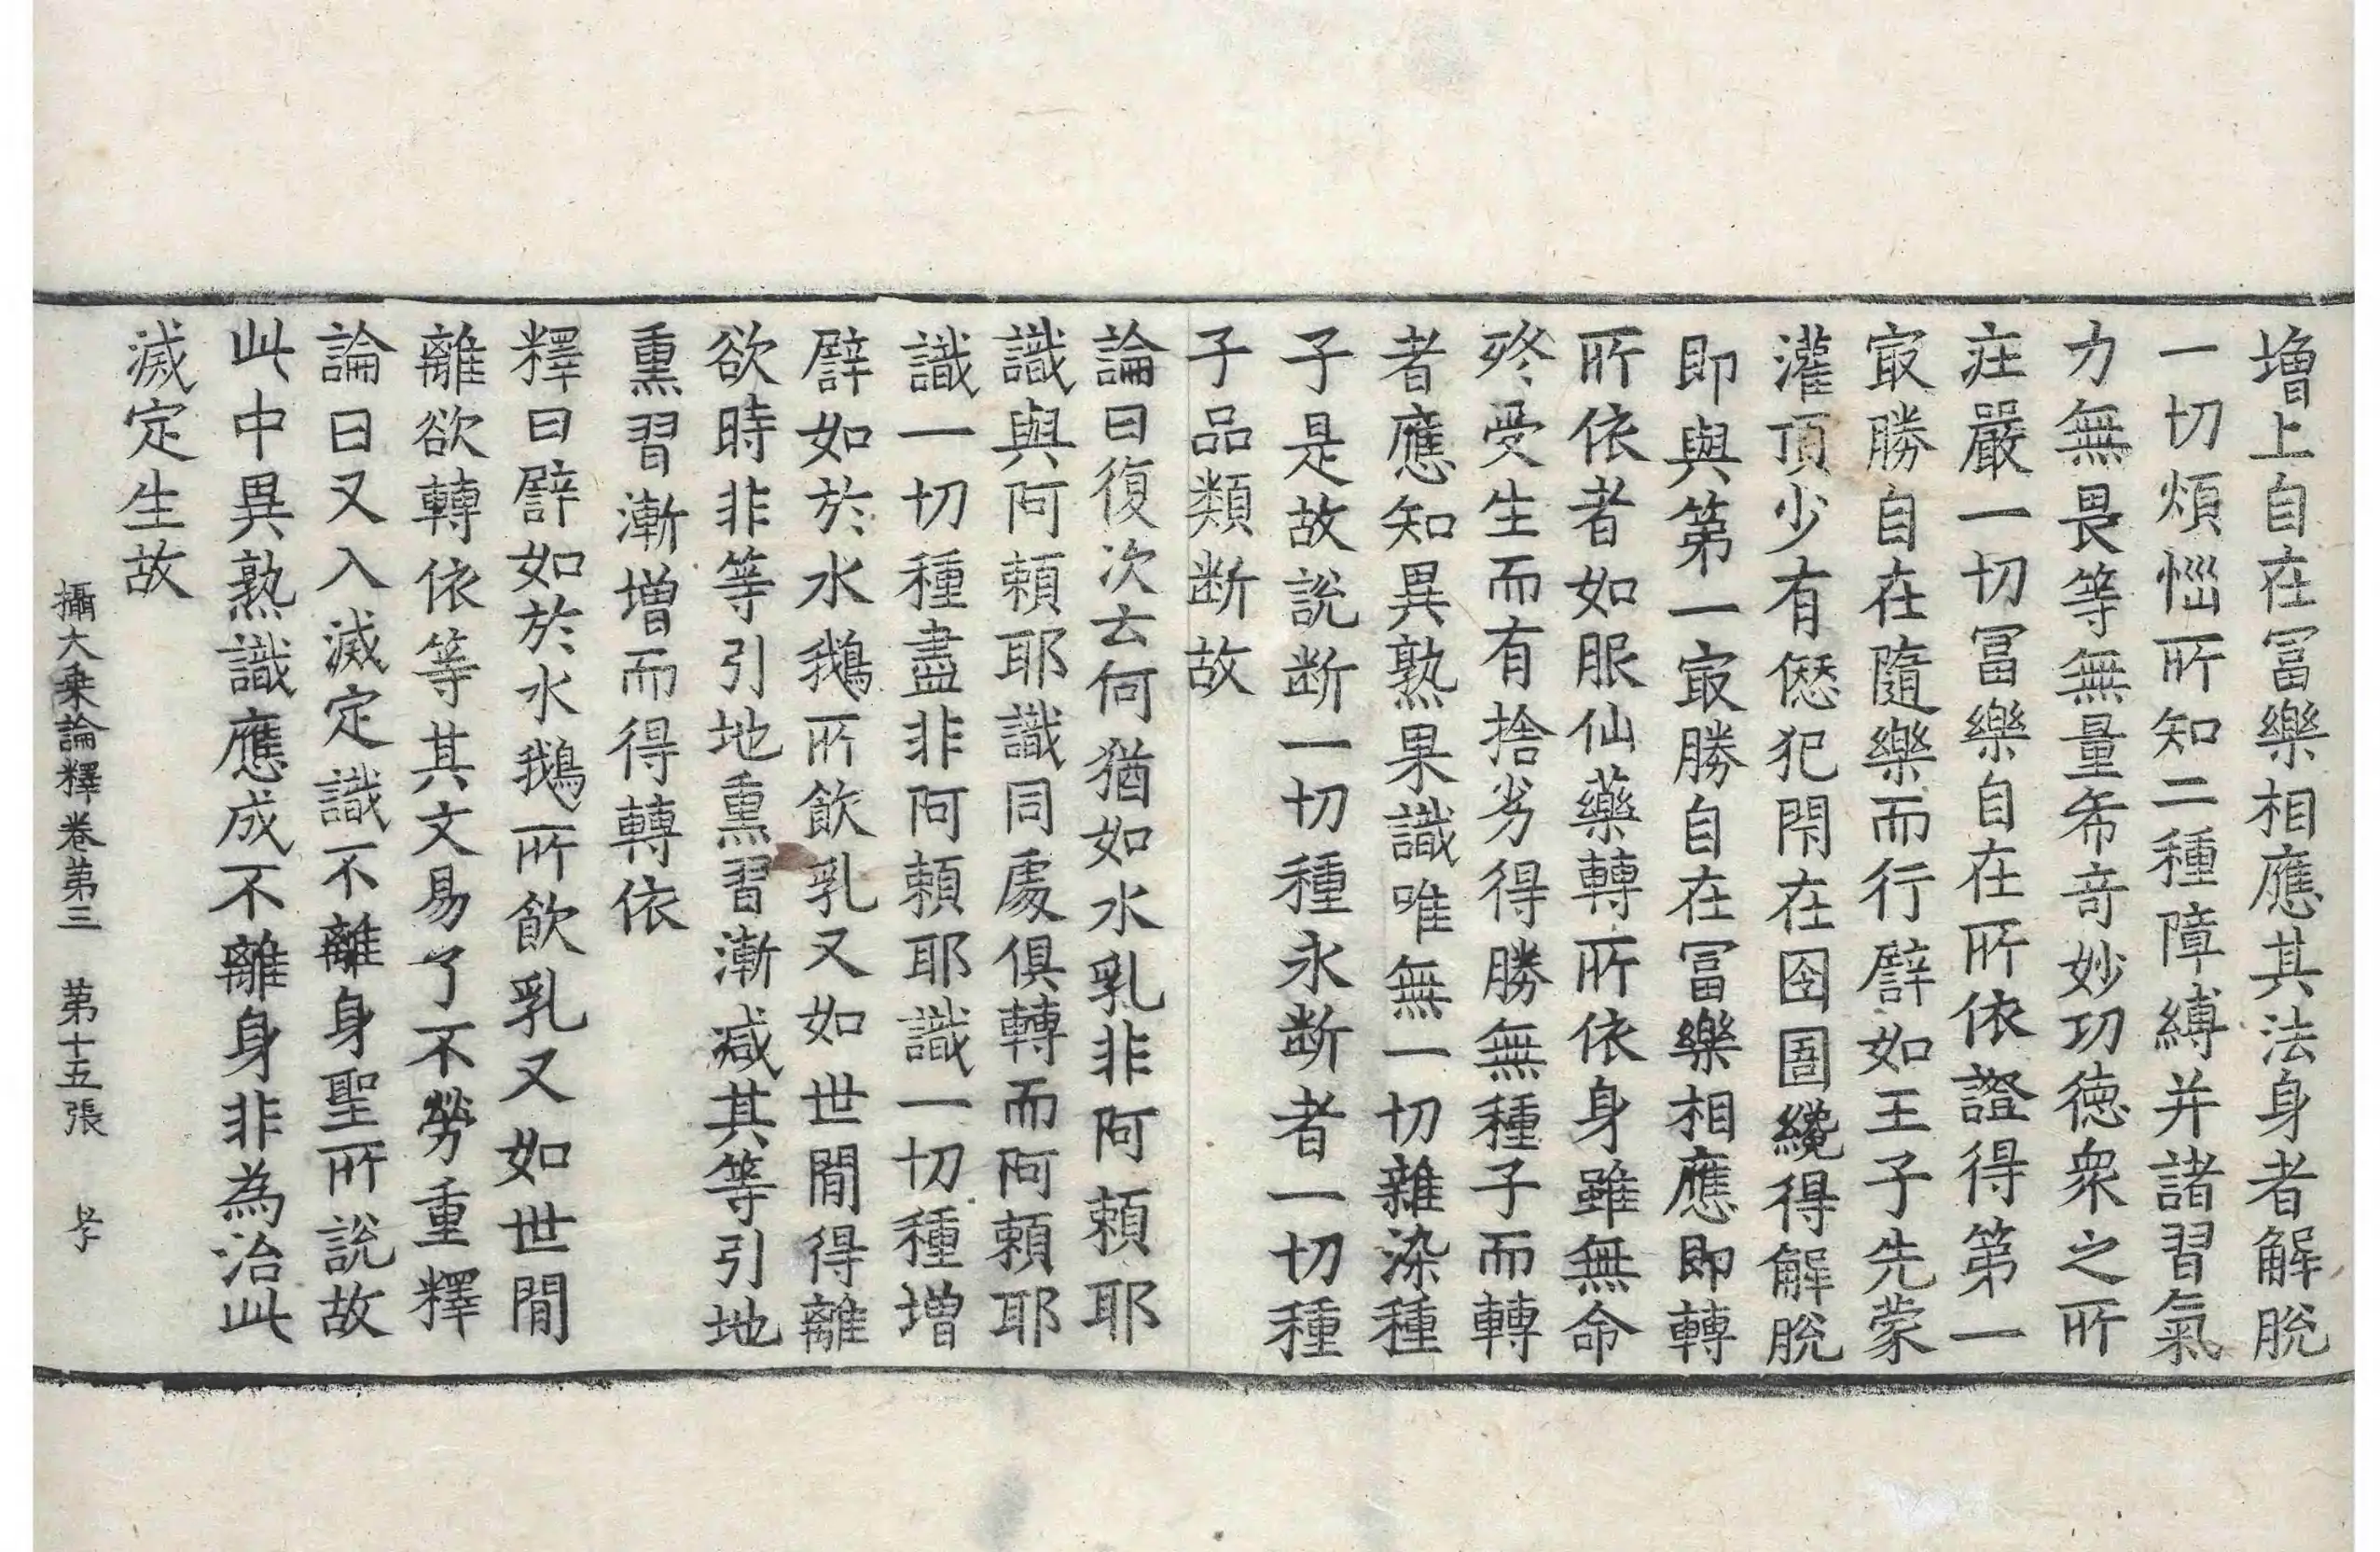 增上自在冨樂相應其法身者解脫
一切煩惱所知二種障縛并諸習氣
力無畏等無量希奇妙功德衆之所
莊嚴一切冨樂自在所依證得第一
㝡勝自在隨樂而行譬如王子先蒙
灌頂少有愆犯閇在囹圄纔得解脫
即與第一㝡勝自在冨樂相應即轉
所依者如服仙藥轉所依身雖無命
終受生而有捨劣得勝無種子而轉
者應知異熟果識唯無一切雜染種
子是故說断一切種永断者一切種
子品類断故
論曰復次云何猶如水乳非阿頼耶
識與阿頼耶識同處俱轉而阿頼耶
識一切種盡非阿頼耶識一切種增
譬如於水鵝所飲乳又如世閒得離
欲時非等引地熏習漸減其等引地
熏習漸增而得轉依
釋曰譬如於水鵝所飲乳又如世閒
離欲轉依等其文易了不勞重釋
論曰又入滅定識不離身聖所說故
此中異熟識應成不離身非為治此
滅定生故
攝大乗論釋卷第三　第十五張　孝